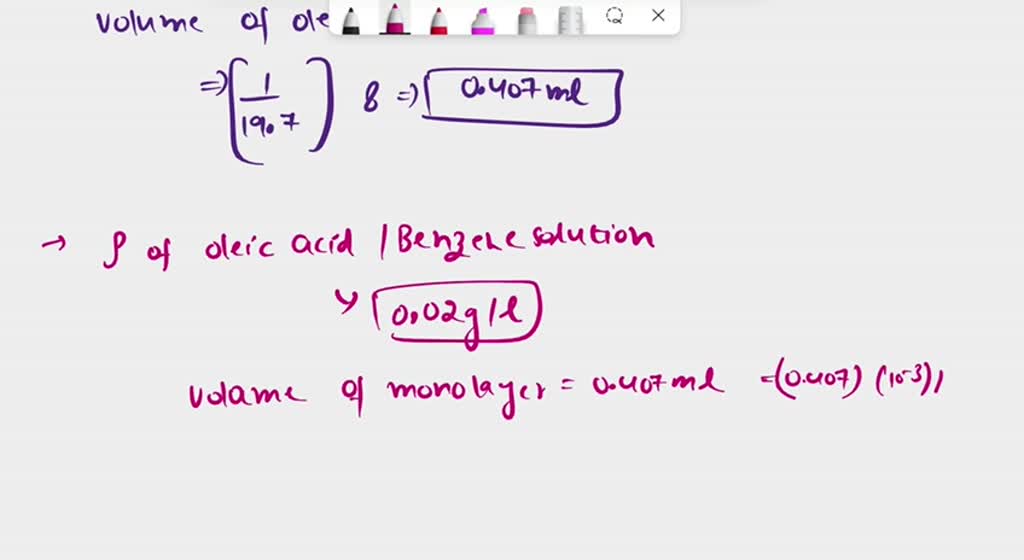 volume of ole
=> (1/19.7) 8 => 0.407 ml
→ ρ of oleic acid / Benzene solution
↳ 0.02g/l
volame of monolayer = 0.407 ml = (0.407) (10-3) l